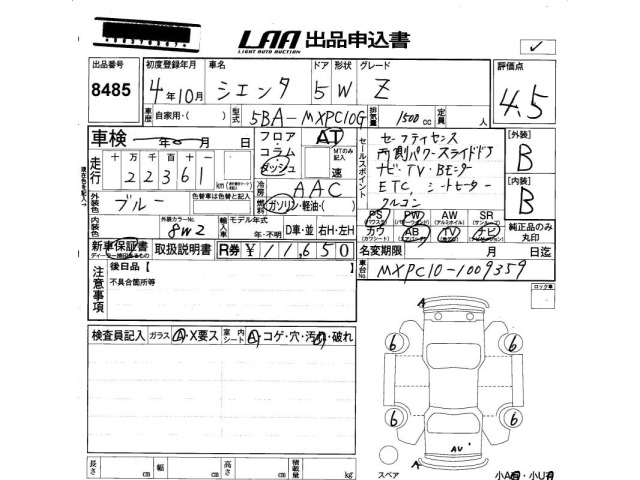 LAA 出品申込書
LIGHT AUTO AUCTION
出品番号 初度登録年月 車名 ドア 形状 グレード 評価点
8485 4年10月 シエンタ 5 W Z 4.5
車歴 自家用・( ) 型式 5BA-MXPC10G 排気量 1500cc 定員 人
車検 年 月 日 フロア・コラム・ダッシュ AT MTのみ記入 速
セールスポイント セーフティセンス
両側パワースライドドア
ナビ・TV・Bモニター
ETC, シートヒーター
クルコン
[外装] B
[内装] B
走行 十万 万 千 百 十 一
22361 km
冷房 AAC
外装色 ブルー 色替車は色替と記入 燃料 ガソリン・軽油・( )
内装色 外装カラーNo. 8W2 輸入車 モデル年式 年・不明 D車・並 右H・左H
PS PW AW SR
カワ AB TV ナビ
純正品のみ丸印
新車保証書 取扱説明書 R券 ¥11,650
名変期限 月 日迄
車台No. MXPC10-1009359
注意事項 後日品【
不具合箇所等
ロック車
検査員記入 ガラス A・X要ス 室内シート A・コゲ・穴・汚れ・破れ
A
6 6
6 6
AU
A
スペア
長さ cm 幅 cm 高さ cm 積載量 kg
小A・小U